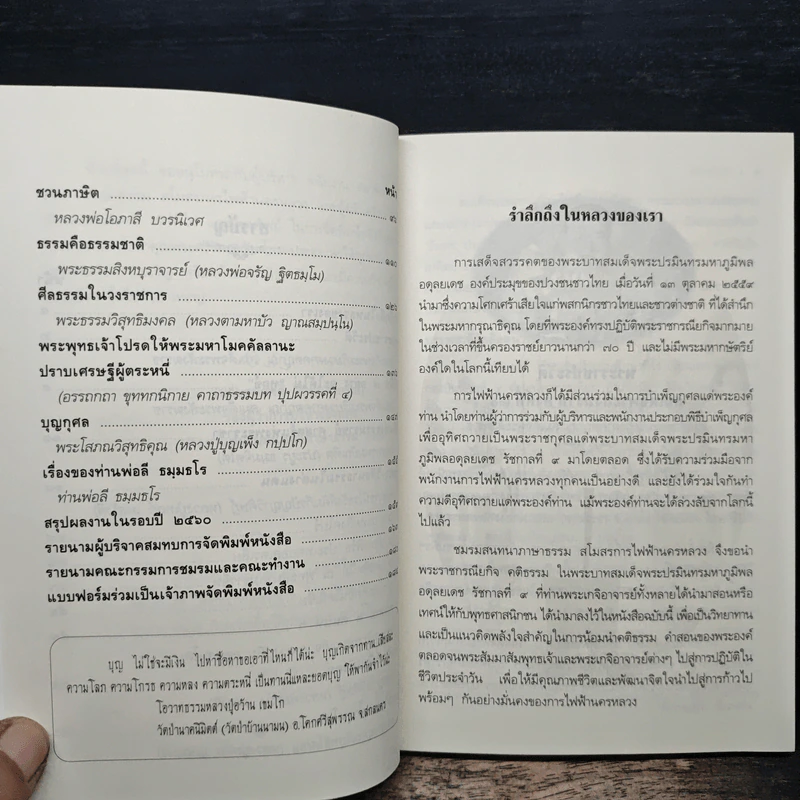 ชวนภาษิต ........ หน้า
หลวงพ่อโอภาสี บวรนิเวศ
ธรรมคือธรรมชาติ ........ ๑๑๐
พระธรรมสิงหบุราจารย์ (หลวงพ่อจรัญ ฐิตธมฺโม)
ศีลธรรมในวงราชการ ........ ๑๒๖
พระธรรมวิสุทธิมงคล (หลวงตามหาบัว ญาณสมฺปนฺโน)
พระพุทธเจ้าโปรดให้พระมหาโมคคัลลานะ
ปราบเศรษฐีผู้ตระหนี่ ........
(อรรถกถา ขุททกนิกาย คาถาธรรมบท ปุปผวรรคที่ ๔)
บุญกุศล ........
พระโสภณวิสุทธิคุณ (หลวงปู่บุญเพ็ง กปฺปโก)
เรื่องของท่านพ่อลี ธมฺมธโร ........
ท่านพ่อลี ธมฺมธโร
สรุปผลงานในรอบปี ๒๕๖๐ ........
รายนามผู้บริจาคสมทบการจัดพิมพ์หนังสือ ........
รายนามคณะกรรมการชมรมและคณะทำงาน ........
แบบฟอร์มร่วมเป็นเจ้าภาพจัดพิมพ์หนังสือ ........
บุญ ไม่ใช่จะมีเงิน ไปหาซื้อหาขอเอาที่ไหนก็ได้น่ะ บุญเกิดจากทาน
ความโลภ ความโกรธ ความหลง ความตระหนี่ เป็นทานนี่แหละยอดบุญ ให้พากันจำไว้น่ะ
โอวาทธรรมหลวงปู่อว้าน เขมโก
วัดป่านาคนิมิตต์ (วัดป่าบ้านนามน) อ.โคกศรีสุพรรณ จ.สกลนคร
รำลึกถึงในหลวงของเรา
การเสด็จสวรรคตของพระบาทสมเด็จพระปรมินทรมหาภูมิพล
อดุลยเดช องค์ประมุขของปวงชนชาวไทย เมื่อวันที่ ๑๓ ตุลาคม ๒๕๕๙
นำมาซึ่งความโศกเศร้าเสียใจแก่พสกนิกรชาวไทยและชาวต่างชาติ ที่ได้สำนึก
ในพระมหากรุณาธิคุณ โดยที่พระองค์ทรงปฏิบัติพระราชกรณียกิจมากมาย
ในช่วงเวลาที่ขึ้นครองราชย์ยาวนานกว่า ๗๐ ปี และไม่มีพระมหากษัตริย์
องค์ใดในโลกนี้เทียบได้
การไฟฟ้านครหลวงก็ได้มีส่วนร่วมในการบำเพ็ญกุศลแด่พระองค์
ท่าน นำโดยท่านผู้ว่าการร่วมกับผู้บริหารและพนักงานประกอบพิธีบำเพ็ญกุศล
เพื่ออุทิศถวายเป็นพระราชกุศลแด่พระบาทสมเด็จพระปรมินทรมหา
ภูมิพลอดุลยเดช รัชกาลที่ ๙ มาโดยตลอด ซึ่งได้รับความร่วมมือจาก
พนักงานการไฟฟ้านครหลวงทุกคนเป็นอย่างดี และยังได้ร่วมใจกันทำ
ความดีอุทิศถวายแด่พระองค์ท่าน แม้พระองค์ท่านจะได้ล่วงลับจากโลกนี้
ไปแล้ว
ชมรมสนทนาภาษาธรรม สโมสรการไฟฟ้านครหลวง จึงขอนำ
พระราชกรณียกิจ คติธรรม ในพระบาทสมเด็จพระปรมินทรมหาภูมิพล
อดุลยเดช รัชกาลที่ ๙ ที่ท่านพระเกจิอาจารย์ทั้งหลายได้นำมาสอนหรือ
เทศน์ให้กับพุทธศาสนิกชน ได้นำมาลงไว้ในหนังสือฉบับนี้ เพื่อเป็นวิทยาทาน
และเป็นแนวคิดพลังใจสำคัญในการน้อมนำคติธรรม คำสอนของพระองค์
ตลอดจนพระสัมมาสัมพุทธเจ้าและพระเกจิอาจารย์ต่างๆ ไปสู่การปฏิบัติใน
ชีวิตประจำวัน เพื่อให้มีคุณภาพชีวิตและพัฒนาจิตใจนำไปสู่การก้าวไป
พร้อมๆ กันอย่างมั่นคงของการไฟฟ้านครหลวง